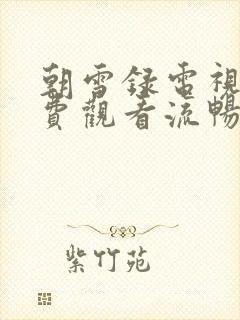 朝雪録電視
費觀看流暢
紫竹苑